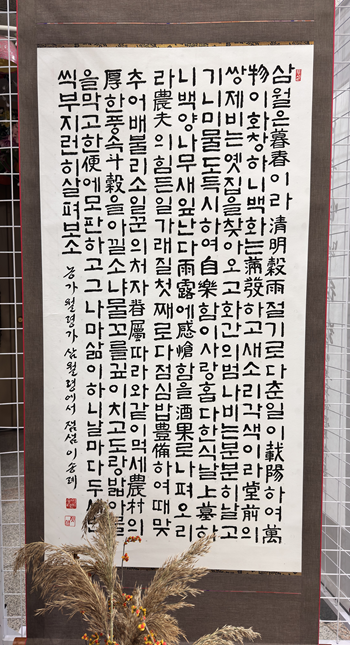 삼월은暮春이라淸明穀雨절기로다춘일이載陽하여萬
物이화창하니백화는滿發하고새소리각색이라堂前의
쌍제비는옛집을찾아오고화간의범나비는분분히날고
기니미물도득시하여自樂함이사랑홉다한식날上墓하
니백양나무새잎난다雨露에感愴함을酒果로나펴오리
라農夫의힘든일가래질첫째로다점심밥豊備하여때맞
추어배불리소일꾼의처자眷屬따라와같이먹세農村의
厚한풍속斗穀을아낄소냐물꼬를깊이치고도랑밟아물
을막고한便에모판하고그나마삶이하니날마다두세번
씩부지런히살펴보소 농가월령가 삼월령에서